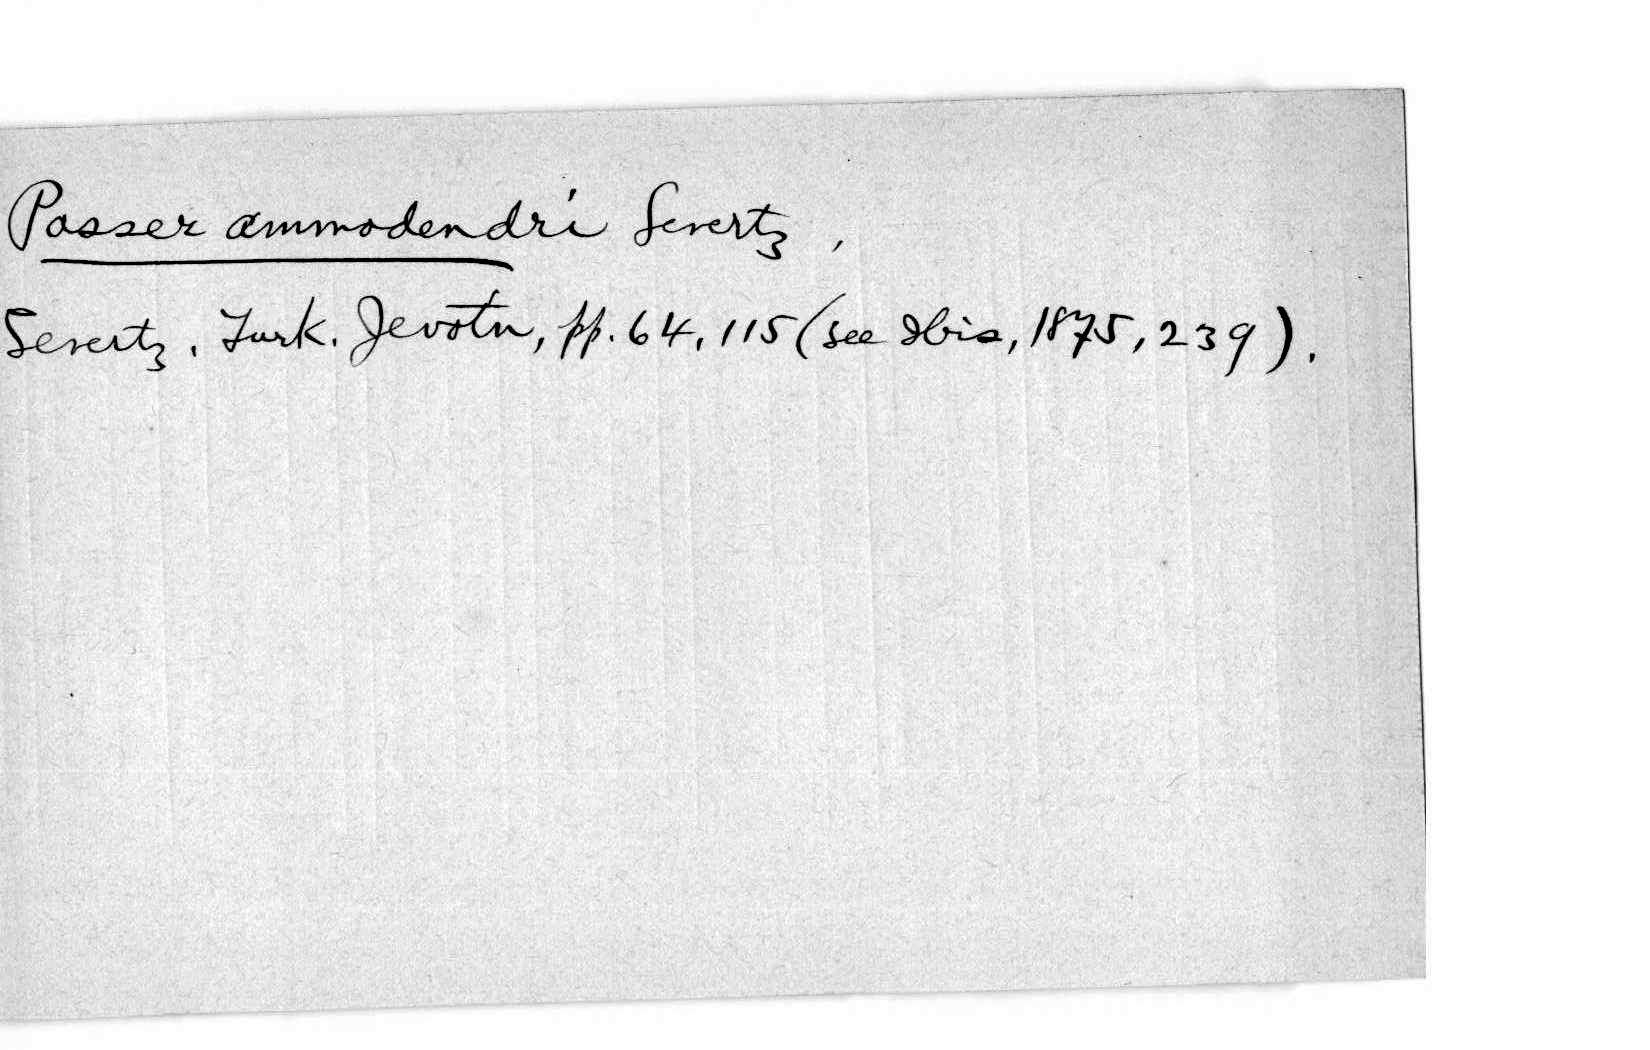 Passer ammodendri Severtz,
Severtz. Turk. Jevotn, pp. 64, 115 (see Ibis, 1875, 239).